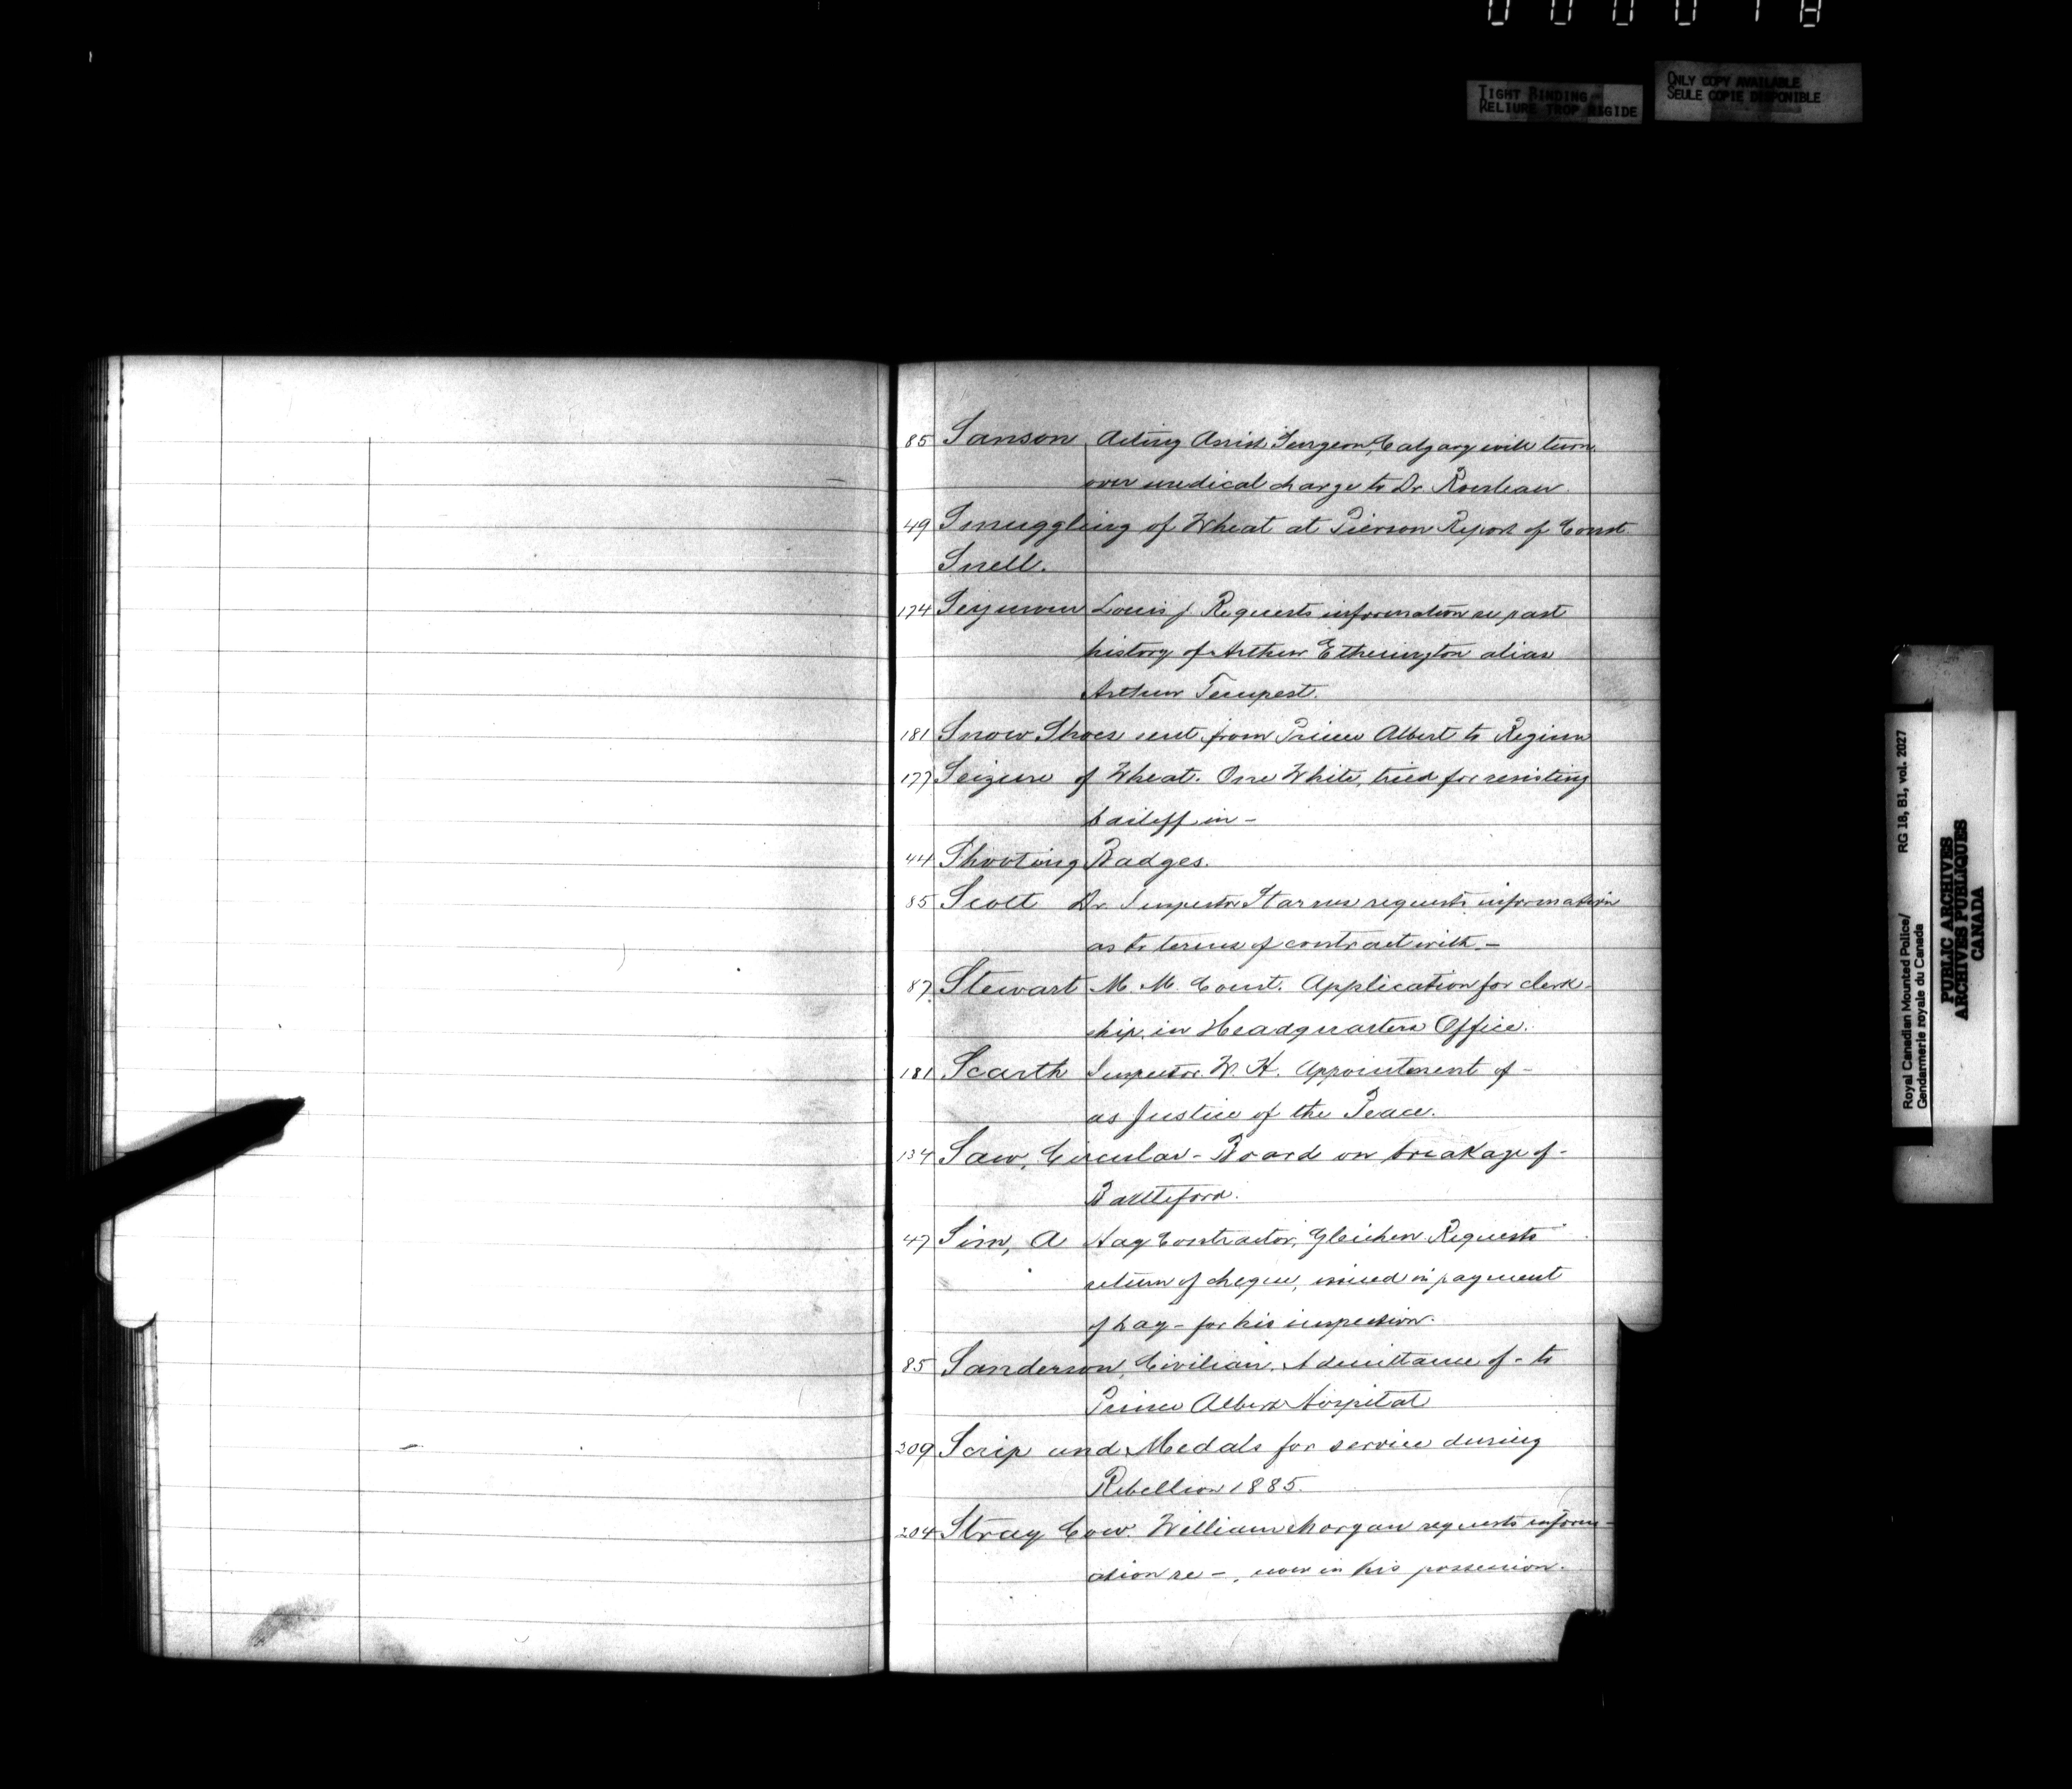 TIGHT BINDING
RELIURE TROP RIGIDE
ONLY COPY AVAILABLE
SEULE COPIE DISPONIBLE
85 Sanson Acting Assist Surgeon, Calgary will turn
over medical charge to Dr Rouleau
49 Smuggling of Wheat at Pierson Report of Const.
Snell.
174 Seymour Louis J. Requests information re past
history of Arthur Etherington alias
Arthur Tempest.
181 Snow Shoes sent from Prince Albert to Regina
177 Seizure of Wheat. One White, tried for resisting
bailiff in -
44 Shooting Badges.
85 Scott Dr. Inspector Starnes requests information
as to terms of contract with -
87 Stewart M. M. Const. Application for clerk-
ship in Headquarters Office.
181 Scarth Inspector W. H. Appointment of -
as Justice of the Peace.
134 Saw, Circular - Board on breakage of -
Battleford.
47 Sim, A Hay Contractor, Gleichen Requests
return of cheque, issued in payment
of hay - for his inspection.
85 Sanderson, Civilian. Admittance of - to
Prince Albert Hospital
209 Scrip and Medals for service during
Rebellion 1885.
204 Stray Cow. William Morgan requests inform-
ation re -, now in his possession.
Royal Canadian Mounted Police/ RG 18, B1, vol. 2027
Gendarmerie royale du Canada
PUBLIC ARCHIVES
ARCHIVES PUBLIQUES
CANADA